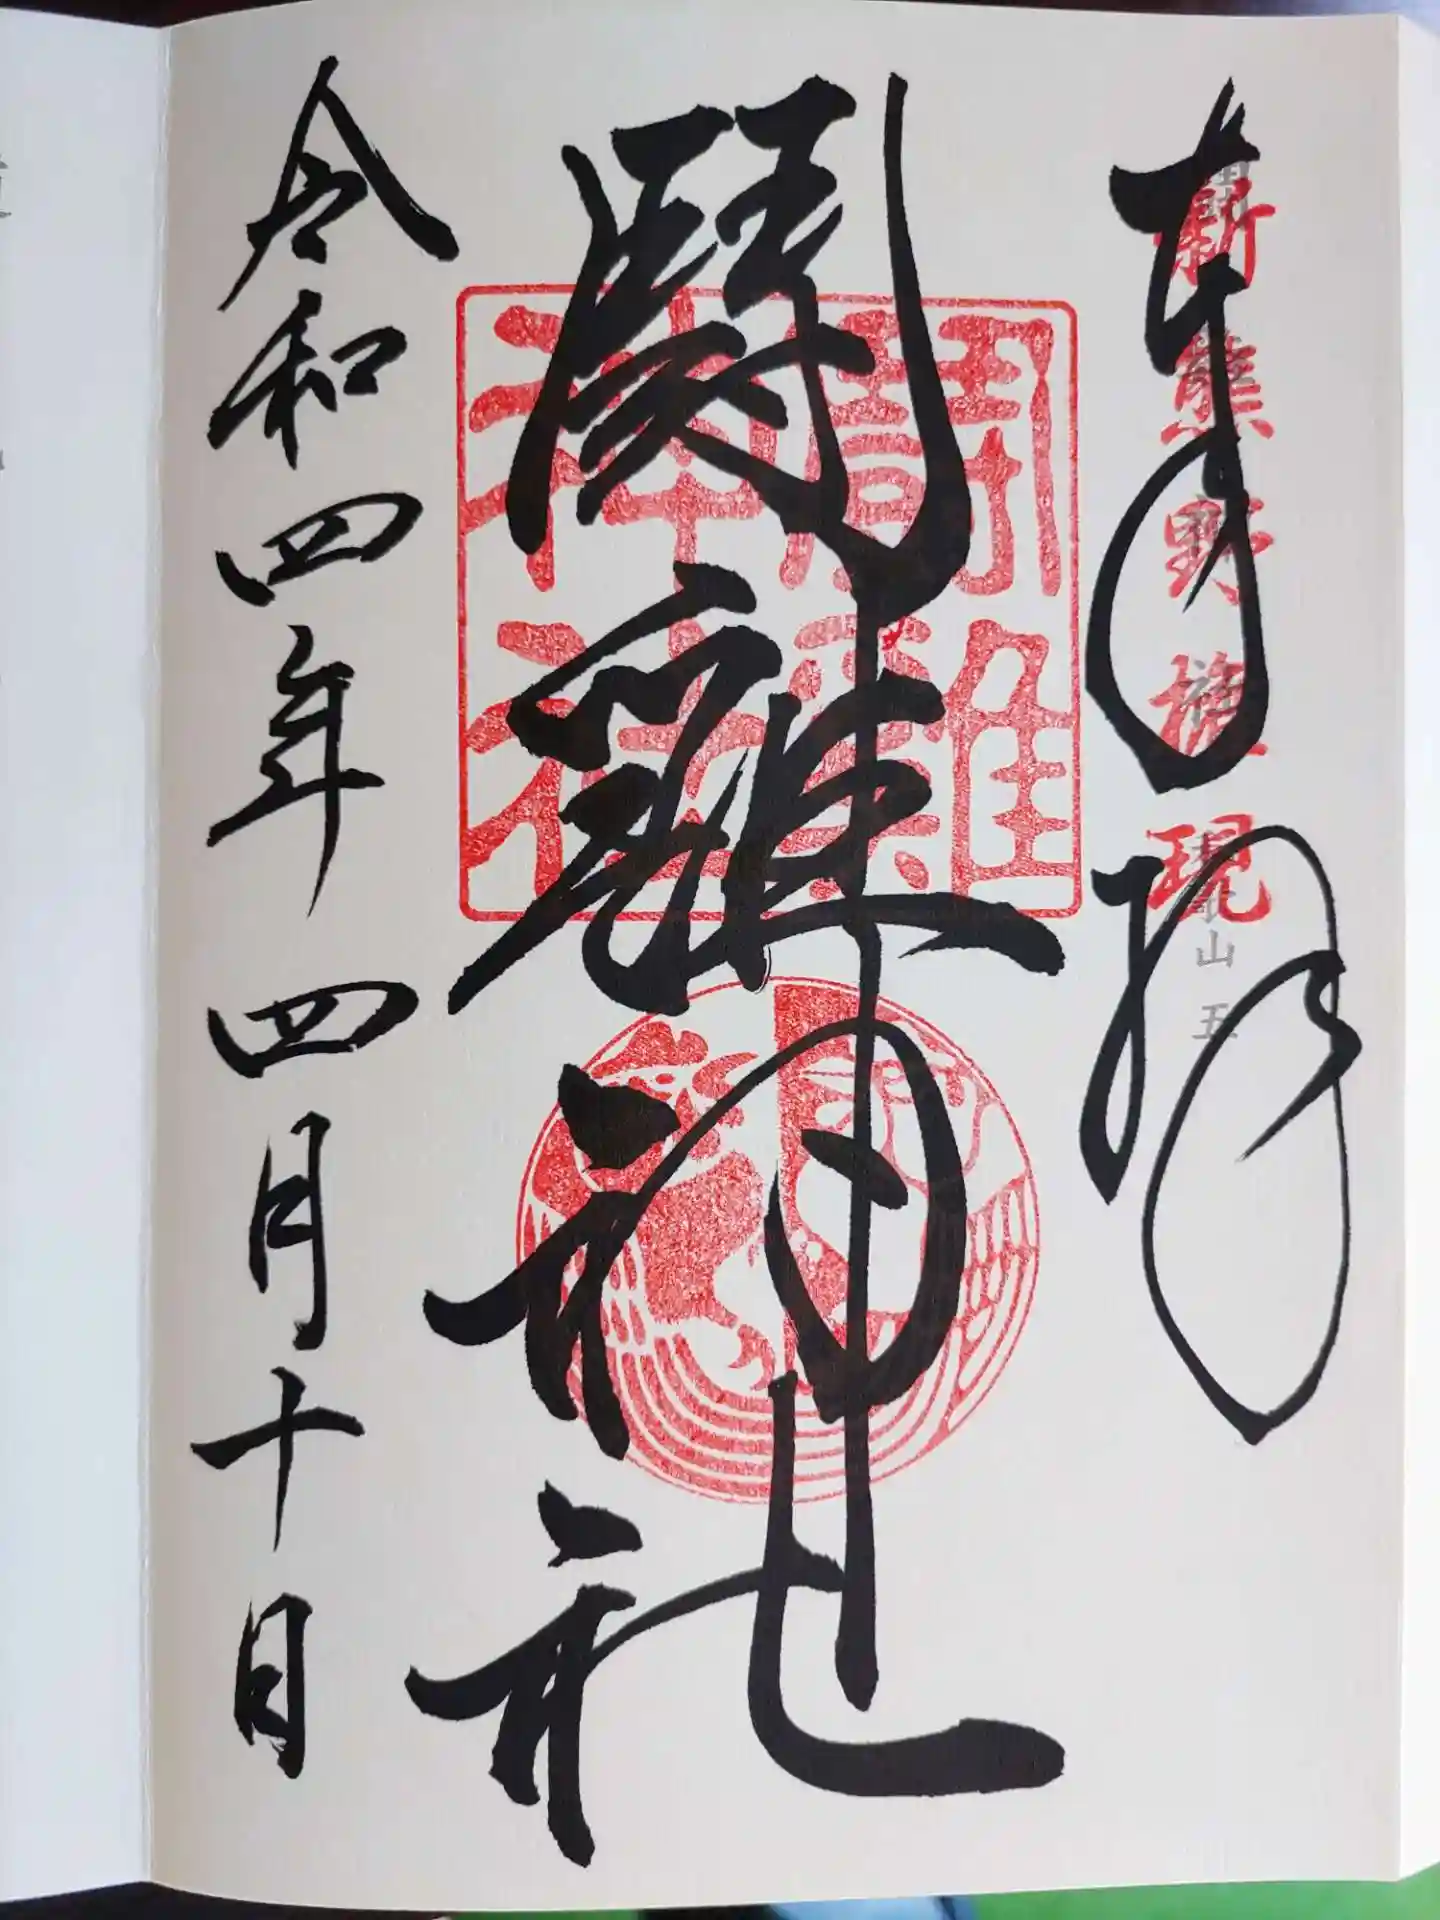 奉拝
新熊野権現
闘雞神社
闘雞神社
令和四年四月十日
山 五